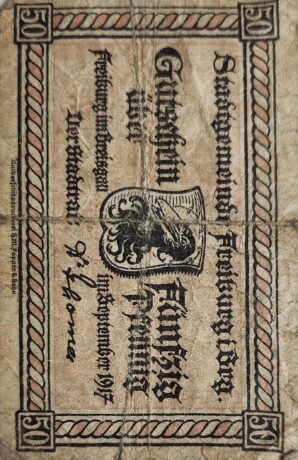 50 50
Stadtgemeinde Freiburg i. Brg.
Gutschein
über
Fünfzig
Pfennig
Freiburg im Breisgau
im September 1917
Der Stadtrat:
50 50